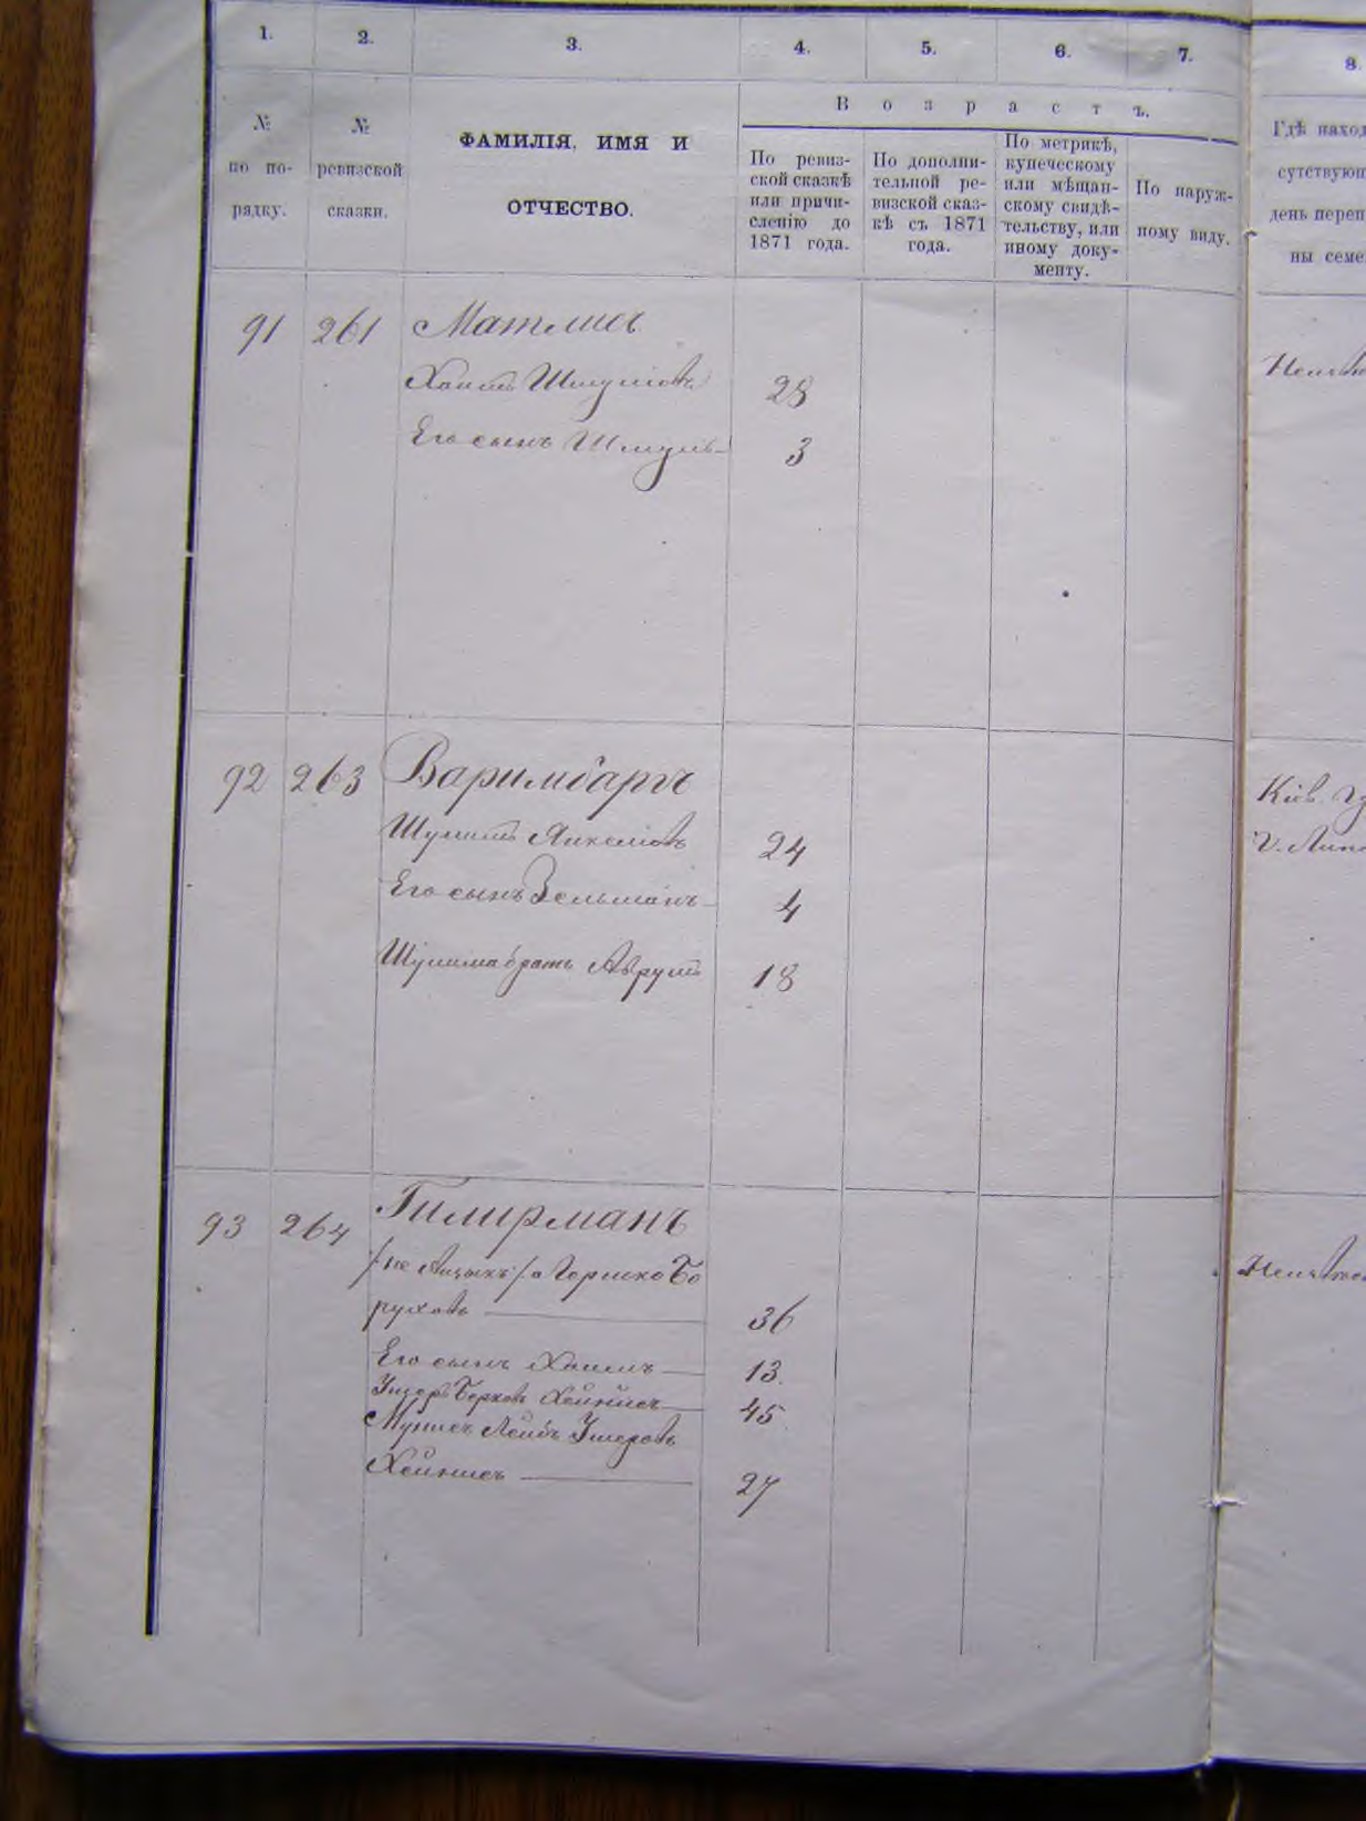 1. 2. 3. 4. 5. 6. 7. 8.
№ по по-рядку.
№ ревизской сказки.
ФАМИЛІЯ, ИМЯ И
ОТЧЕСТВО.
Возрастъ.
По ревиз-
ской сказкѣ
или причи-
сленію до
1871 года.
По дополни-
тельной ре-
визской сказ-
кѣ съ 1871
года.
По метрикѣ,
купеческому
или мѣщан-
скому свидѣ-
тельству, или
иному доку-
менту.
По наруж-
ному виду.
Гдѣ наход
сутствую
день переп
ны семе
91 261 Матлисъ
Хаимъ Шмулiовъ 28
Его сынъ Шмуль 3
92 263 Варимбаргъ
Шулимъ Янкелiовъ 24
Его сынъ Зельманъ 4
Шулима братъ Аврумъ 18
Кіев. Гу
93 264 Гилирманъ
/не Айзыкъ/ а Гершко Бо
руховъ 36
Его сынъ Хаимъ 13
Ушеръ Берковъ Хейнисъ 45
Мунисъ Лейбъ Ушеровъ
Хейнисъ 27